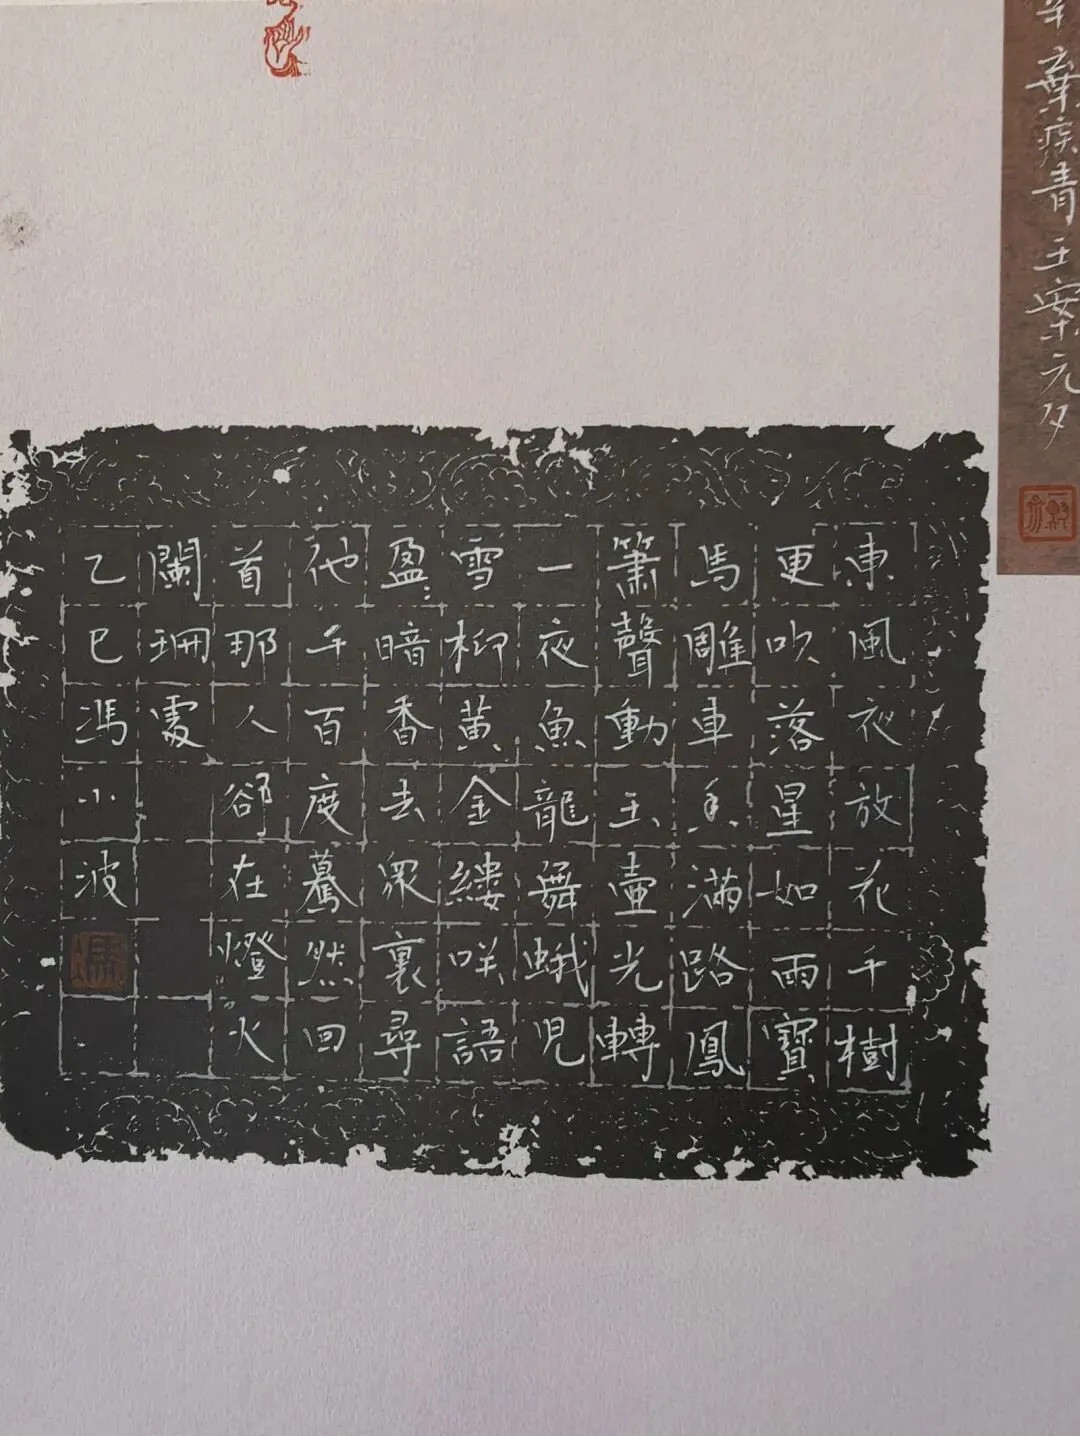 辛棄疾青玉案元夕
東風夜放花千樹
更吹落星如雨寶
馬雕車香滿路鳳
簫聲動玉壺光轉
一夜魚龍舞蛾兒
雪柳黃金縷咲語
盈〻暗香去眾裏尋
他千百度驀然回
首那人卻在燈火
闌珊處
乙巳馮小波